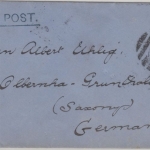 POST.
Albert Uhlig,
Olbernha - Grünthal
(Saxony)
German